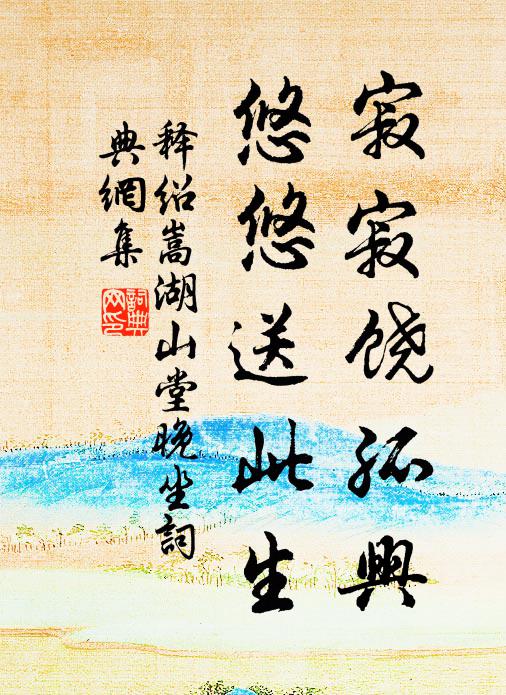 寂寂饶孤興
悠悠送此生
释绍嵩湖山堂晚坐詞
典網集
詞典網印